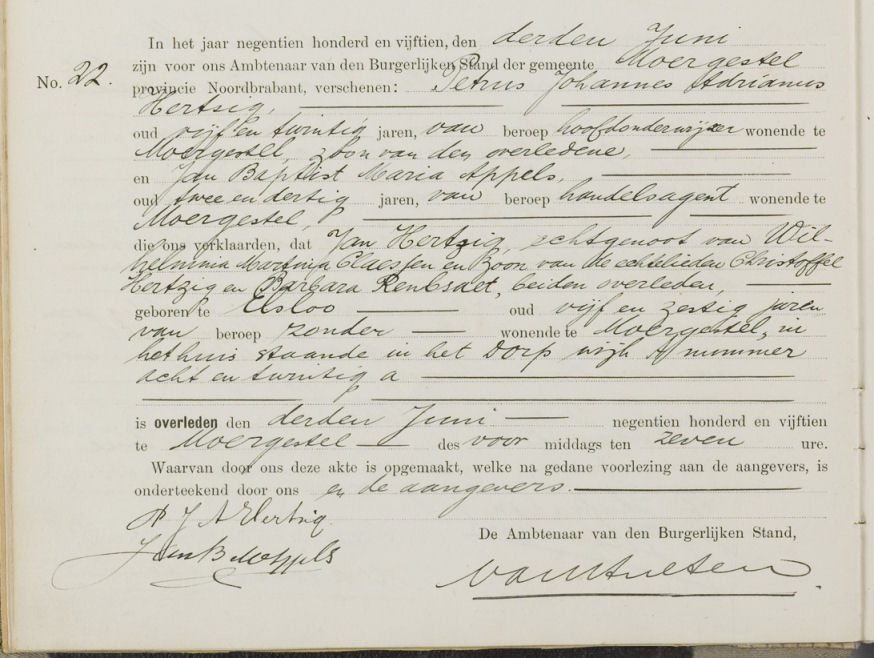 In het jaar negentien honderd en vijftien, den derden Juni
zijn voor ons Ambtenaar van den Burgerlijken Stand der gemeente Moergestel
No. 22. provincie Noordbrabant, verschenen: Petrus Johannes Adrianus
Hertsig,
oud vijf en twintig jaren, van beroep hoofdonderwijzer wonende te
Moergestel, zoon van den overledene,
en Jan Baptist Maria Appels,
oud twee en dertig jaren, van beroep handelsagent wonende te
Moergestel,
die ons verklaarden, dat Jan Hertzig, echtgenoot van Wil-
helmina Martina Claessen en Zoon van de echtelieden Christoffel
Hertzig en Barbara beiden overleden,
geboren te Elsloo oud vijf en zestig jaren
van beroep zonder wonende te Moergestel, in
het huis staande in het Dorp wijk A nummer
acht en twintig a
is overleden den derden Juni negentien honderd en vijftien
te Moergestel des voor middags ten zeven ure.
Waarvan door ons deze akte is opgemaakt, welke na gedane voorlezing aan de aangevers, is
onderteekend door ons en de aangevers.
P J A Hertsig
De Ambtenaar van den Burgerlijken Stand,
Jan B M Appels